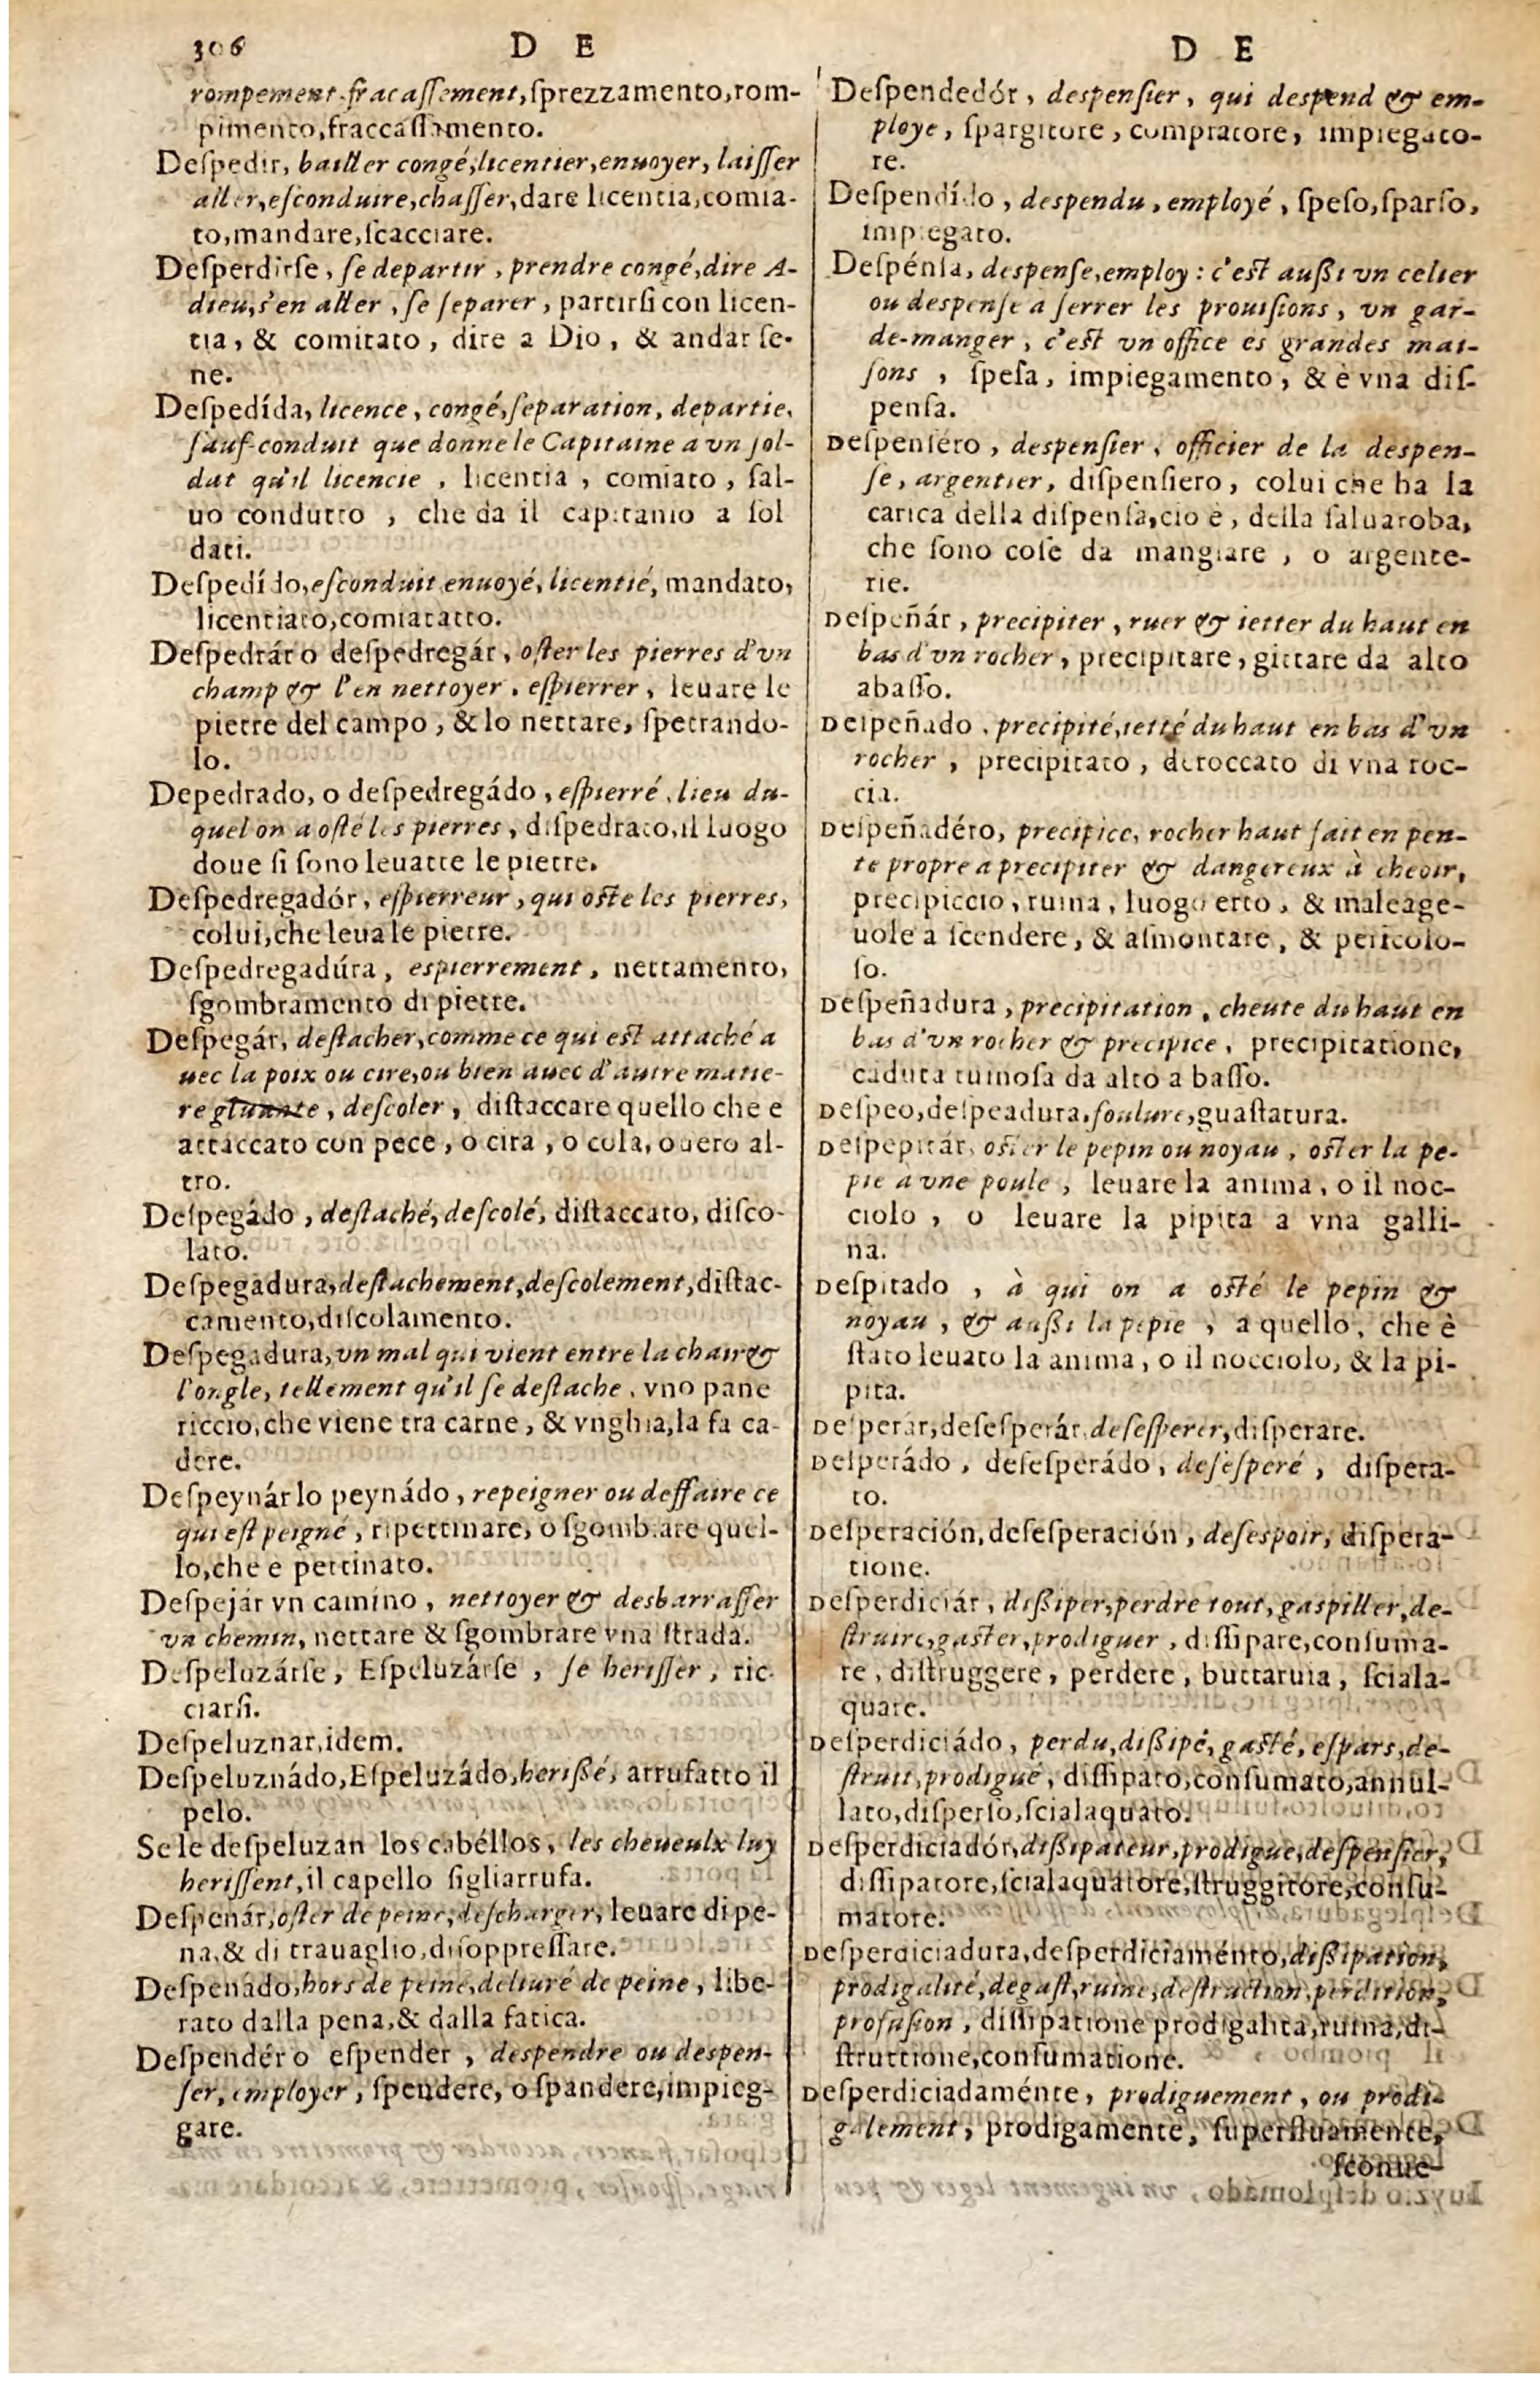 306 D E
rompement, fracaſſement, ſprezzamento, rom-
pimento, fraccaſſamento.
Deſpedir, bailler congé, licentier, enuoyer, laiſſer
aller, eſconduire, chaſſer, dare licentia, comia-
to, mandare, ſcacciare.
Deſperdirſe, ſe departir, prendre congé, dire A-
dieu, s'en aller, ſe ſeparer, partirſi con licen-
tia, & comitato, dire a Dio, & andar ſe-
ne.
Deſpedída, licence, congé, ſeparation, departie,
ſauf-conduit que donne le Capitaine a vn ſol-
dat qu'il licencie, licentia, comiato, ſal-
uo condutto, che da il capitanio a ſol
dati.
Deſpedído, eſconduit, enuoyé, licentié, mandato,
licentiato, comiatatto.
Deſpedrár o deſpedregár, oſter les pierres d'vn
champ & l'en nettoyer, eſpierrer, leuare le
pietre del campo, & lo nettare, ſpetrando-
lo.
Depedrado, o deſpedregádo, eſpierré, lieu du-
quel on a oſté les pierres, diſpedrato, il luogo
doue ſi ſono leuatte le pietre.
Deſpedregadór, eſpierreur, qui oſte les pierres,
colui, che leua le pietre.
Deſpedregadúra, espierrement, nettamento,
ſgombramento di pietre.
Deſpegár, deſtacher, comme ce qui eſt attaché a
uec la poix ou cire, ou bien auec d'autre matie-
re gluante, deſcoler, diſtaccare quello che e
attaccato con pece, o cira, o cola, ouero al-
tro.
Deſpegádo, deſtaché, deſcolé, diſtaccato, diſco-
lato.
Deſpegadura, deſtachement, deſcolement, diſtac-
camento, diſcolamento.
Deſpegadura, vn mal qui vient entre la chair &
l'ongle, tellement qu'il ſe deſtache, vno pane
riccio, che viene tra carne, & vnghia, la fa ca-
dere.
Deſpeynár lo peynádo, repeigner ou deffaire ce
qui eſt peigné, ripettinare, o ſgombrare quel-
lo, che e pettinato.
Deſpejár vn camino, nettoyer & desbarraſſer
vn chemin, nettare & ſgombrare vna ſtrada.
Deſpeluzárſe, Eſpeluzárſe, ſe heriſſer, ric-
ciarſi.
Deſpeluznar, idem.
Deſpeluznádo, Eſpeluzádo, herißé, arrufatto il
pelo.
Se le deſpeluzan los cabéllos, les cheueulx luy
heriſſent, il capello ſigliarrufa.
Deſpenár, oſter de peine, deſcharger, leuare di pe-
na, & di trauaglio, diſoppreſſare.
Deſpenado, hors de peine, deliuré de peine, libe-
rato dalla pena, & dalla fatica.
Deſpendér o eſpender, despendre ou despen-
ſer, employer, ſpendere, o ſpandere, impieg-
gare.
D E
Deſpendedór, despenſier, qui despend & em-
ploye, ſpargitore, compratore, impiegato-
re.
Deſpendído, despendu, employé, ſpeſo, ſparſo,
impiegato.
Deſpénſa, despenſe, employ: c'eſt außi vn celier
ou despenſe a ſerrer les prouiſions, vn gar-
de-manger, c'eſt vn office es grandes mai-
ſons, ſpeſa, impiegamento, & è vna diſ-
penſa.
Deſpenſéro, despenſier, officier de la despen-
ſe, argentier, diſpenſiero, colui che ha la
carica della diſpenſa, cio è, della ſaluaroba,
che ſono coſe da mangiare, o argente-
rie.
Deſpeñár, precipiter, ruer & ietter du haut en
bas d'vn rocher, precipitare, gittare da alto
abaſſo.
Deſpeñado, precipité, ietté du haut en bas d'vn
rocher, precipitato, deroccato di vna roc-
cia.
Deſpeñadéro, precipice, rocher haut fait en pen-
te propre a precipiter & dangereux à cheoir,
precipiccio, ruina, luogo erto, & maleage-
uole a ſcendere, & aſmontare, & pericolo-
ſo.
Deſpeñadura, precipitation, cheute du haut en
bas d'vn rocher & precipice, precipitatione,
caduta ruinoſa da alto a baſſo.
Deſpeo, deſpeadura, foulure, guaſtatura.
Deſpepitár, oſter le pepin ou noyau, oſter la pe-
pie a vne poule, leuare la anima, o il noc-
ciolo, o leuare la pipita a vna galli-
na.
Deſpitado, à qui on a oſté le pepin &
noyau, & außi la pepie, a quello, che è
ſtato leuato la anima, o il nocciolo, & la pi-
pita.
Deſperár, deſeſperár, deſeſperer, diſperare.
Deſperádo, deſeſperádo, deſeſperé, diſpera-
to.
Deſperación, deſeſperación, deſespoir, diſpera-
tione.
Deſperdiciár, dißiper, perdre tout, gaspiller, de-
ſtruire, gaſter, prodiguer, diſſipare, conſuma-
re, diſtruggere, perdere, buttaruia, ſciala-
quare.
Deſperdiciádo, perdu, dißipé, gaſté, eſpars, de-
ſtruit, prodigué, diſſipato, conſumato, annul-
lato, diſperſo, ſcialaquato.
Deſperdiciadór, dißipateur, prodigue, deſpenſier,
diſſipatore, ſcialaquatore, ſtruggitore, conſu-
matore.
Deſperdiciadura, deſperdiciaménto, dißipation,
prodigalité, degaſt, ruine, deſtruction, perdition,
profuſion, diſſipatione prodigalita, ruina, di-
ſtruttione, conſumatione.
Deſperdiciadaménte, prodiguement, ou prodi-
galement, prodigamente, ſuperfluamente,
ſconue-